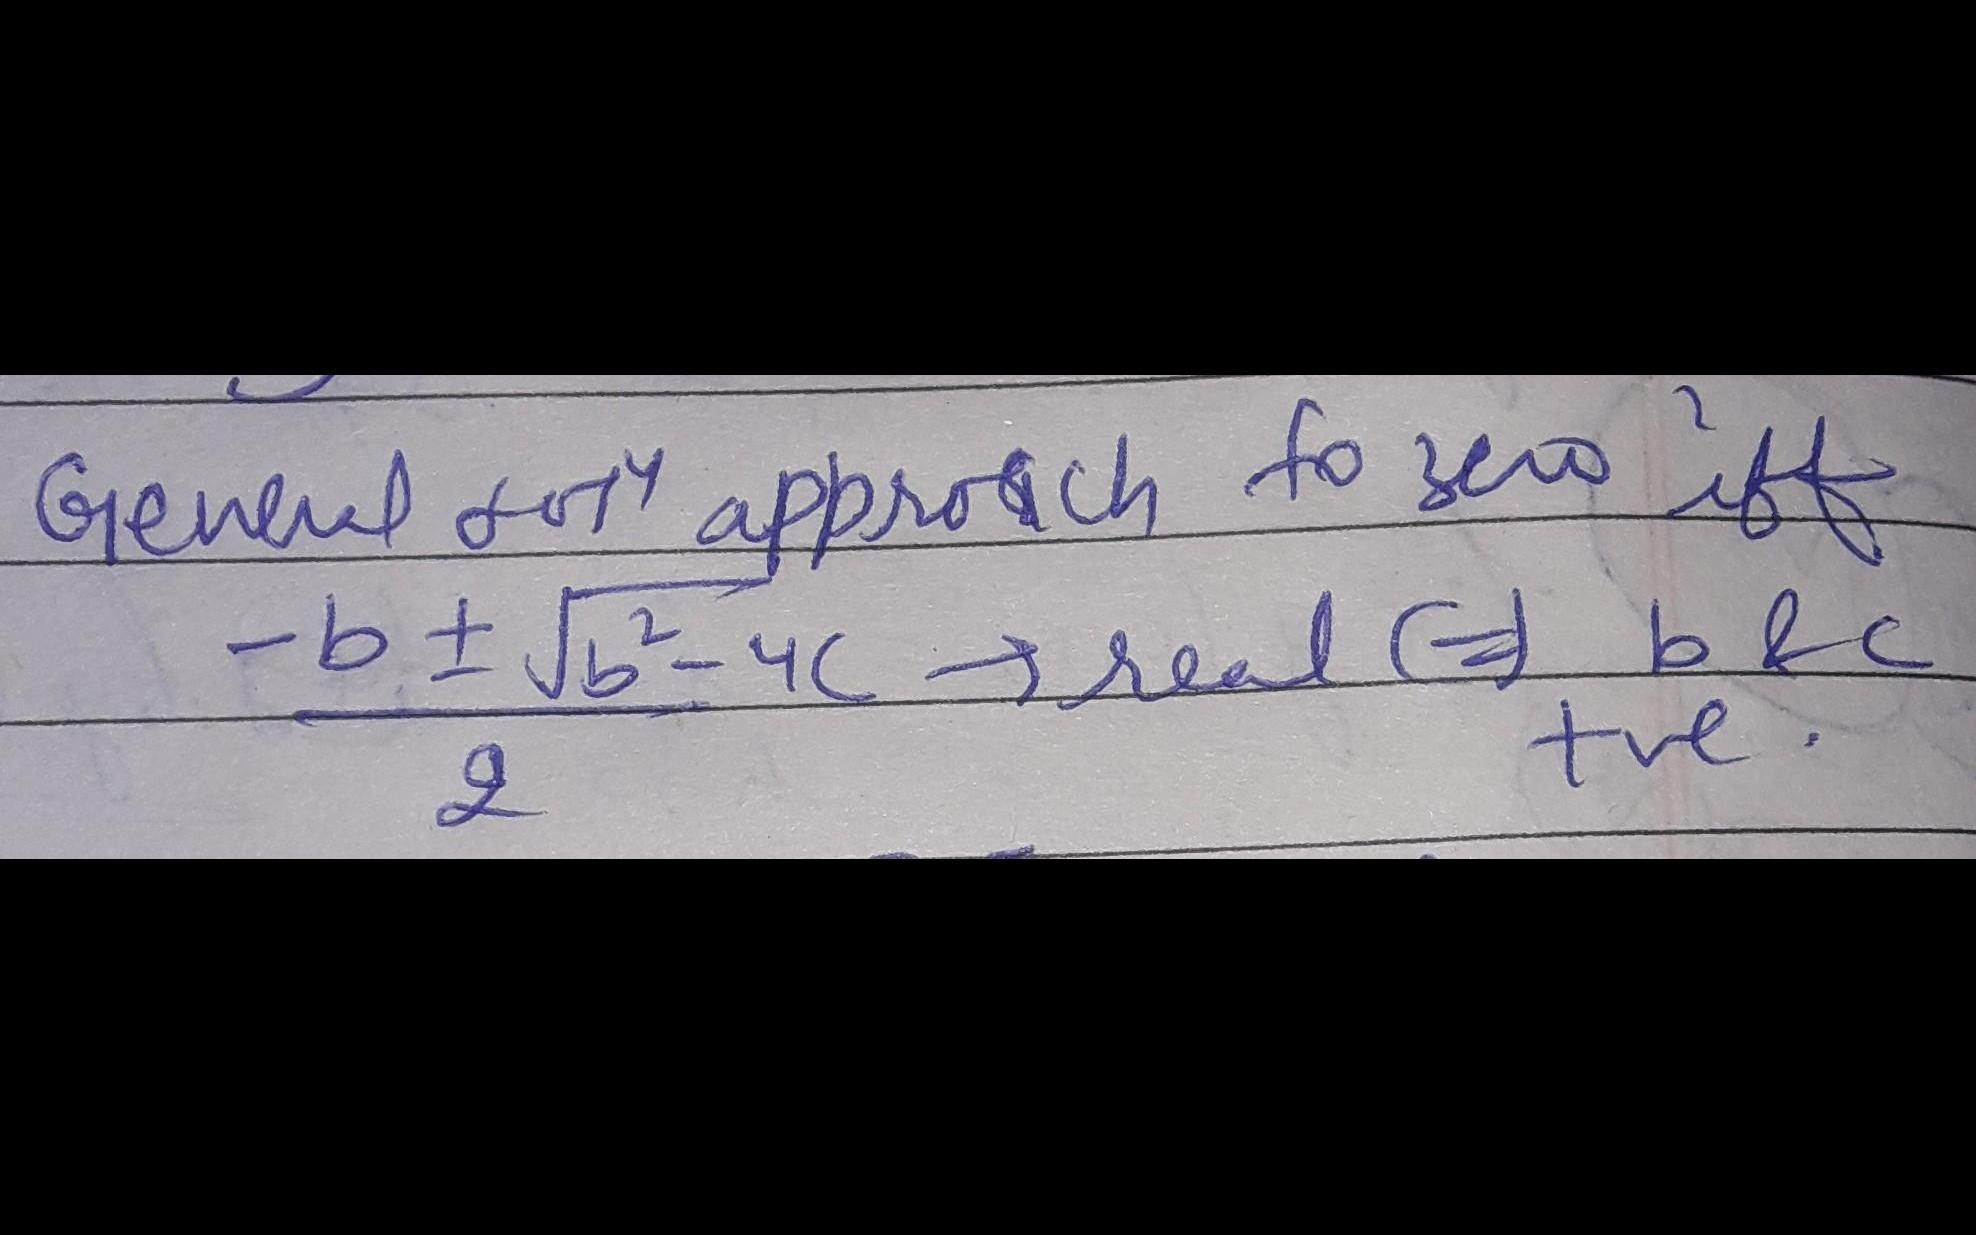 General solⁿ approach to zero iff
-b ± √b² - 4c → real (=) b & c
2 +ve.